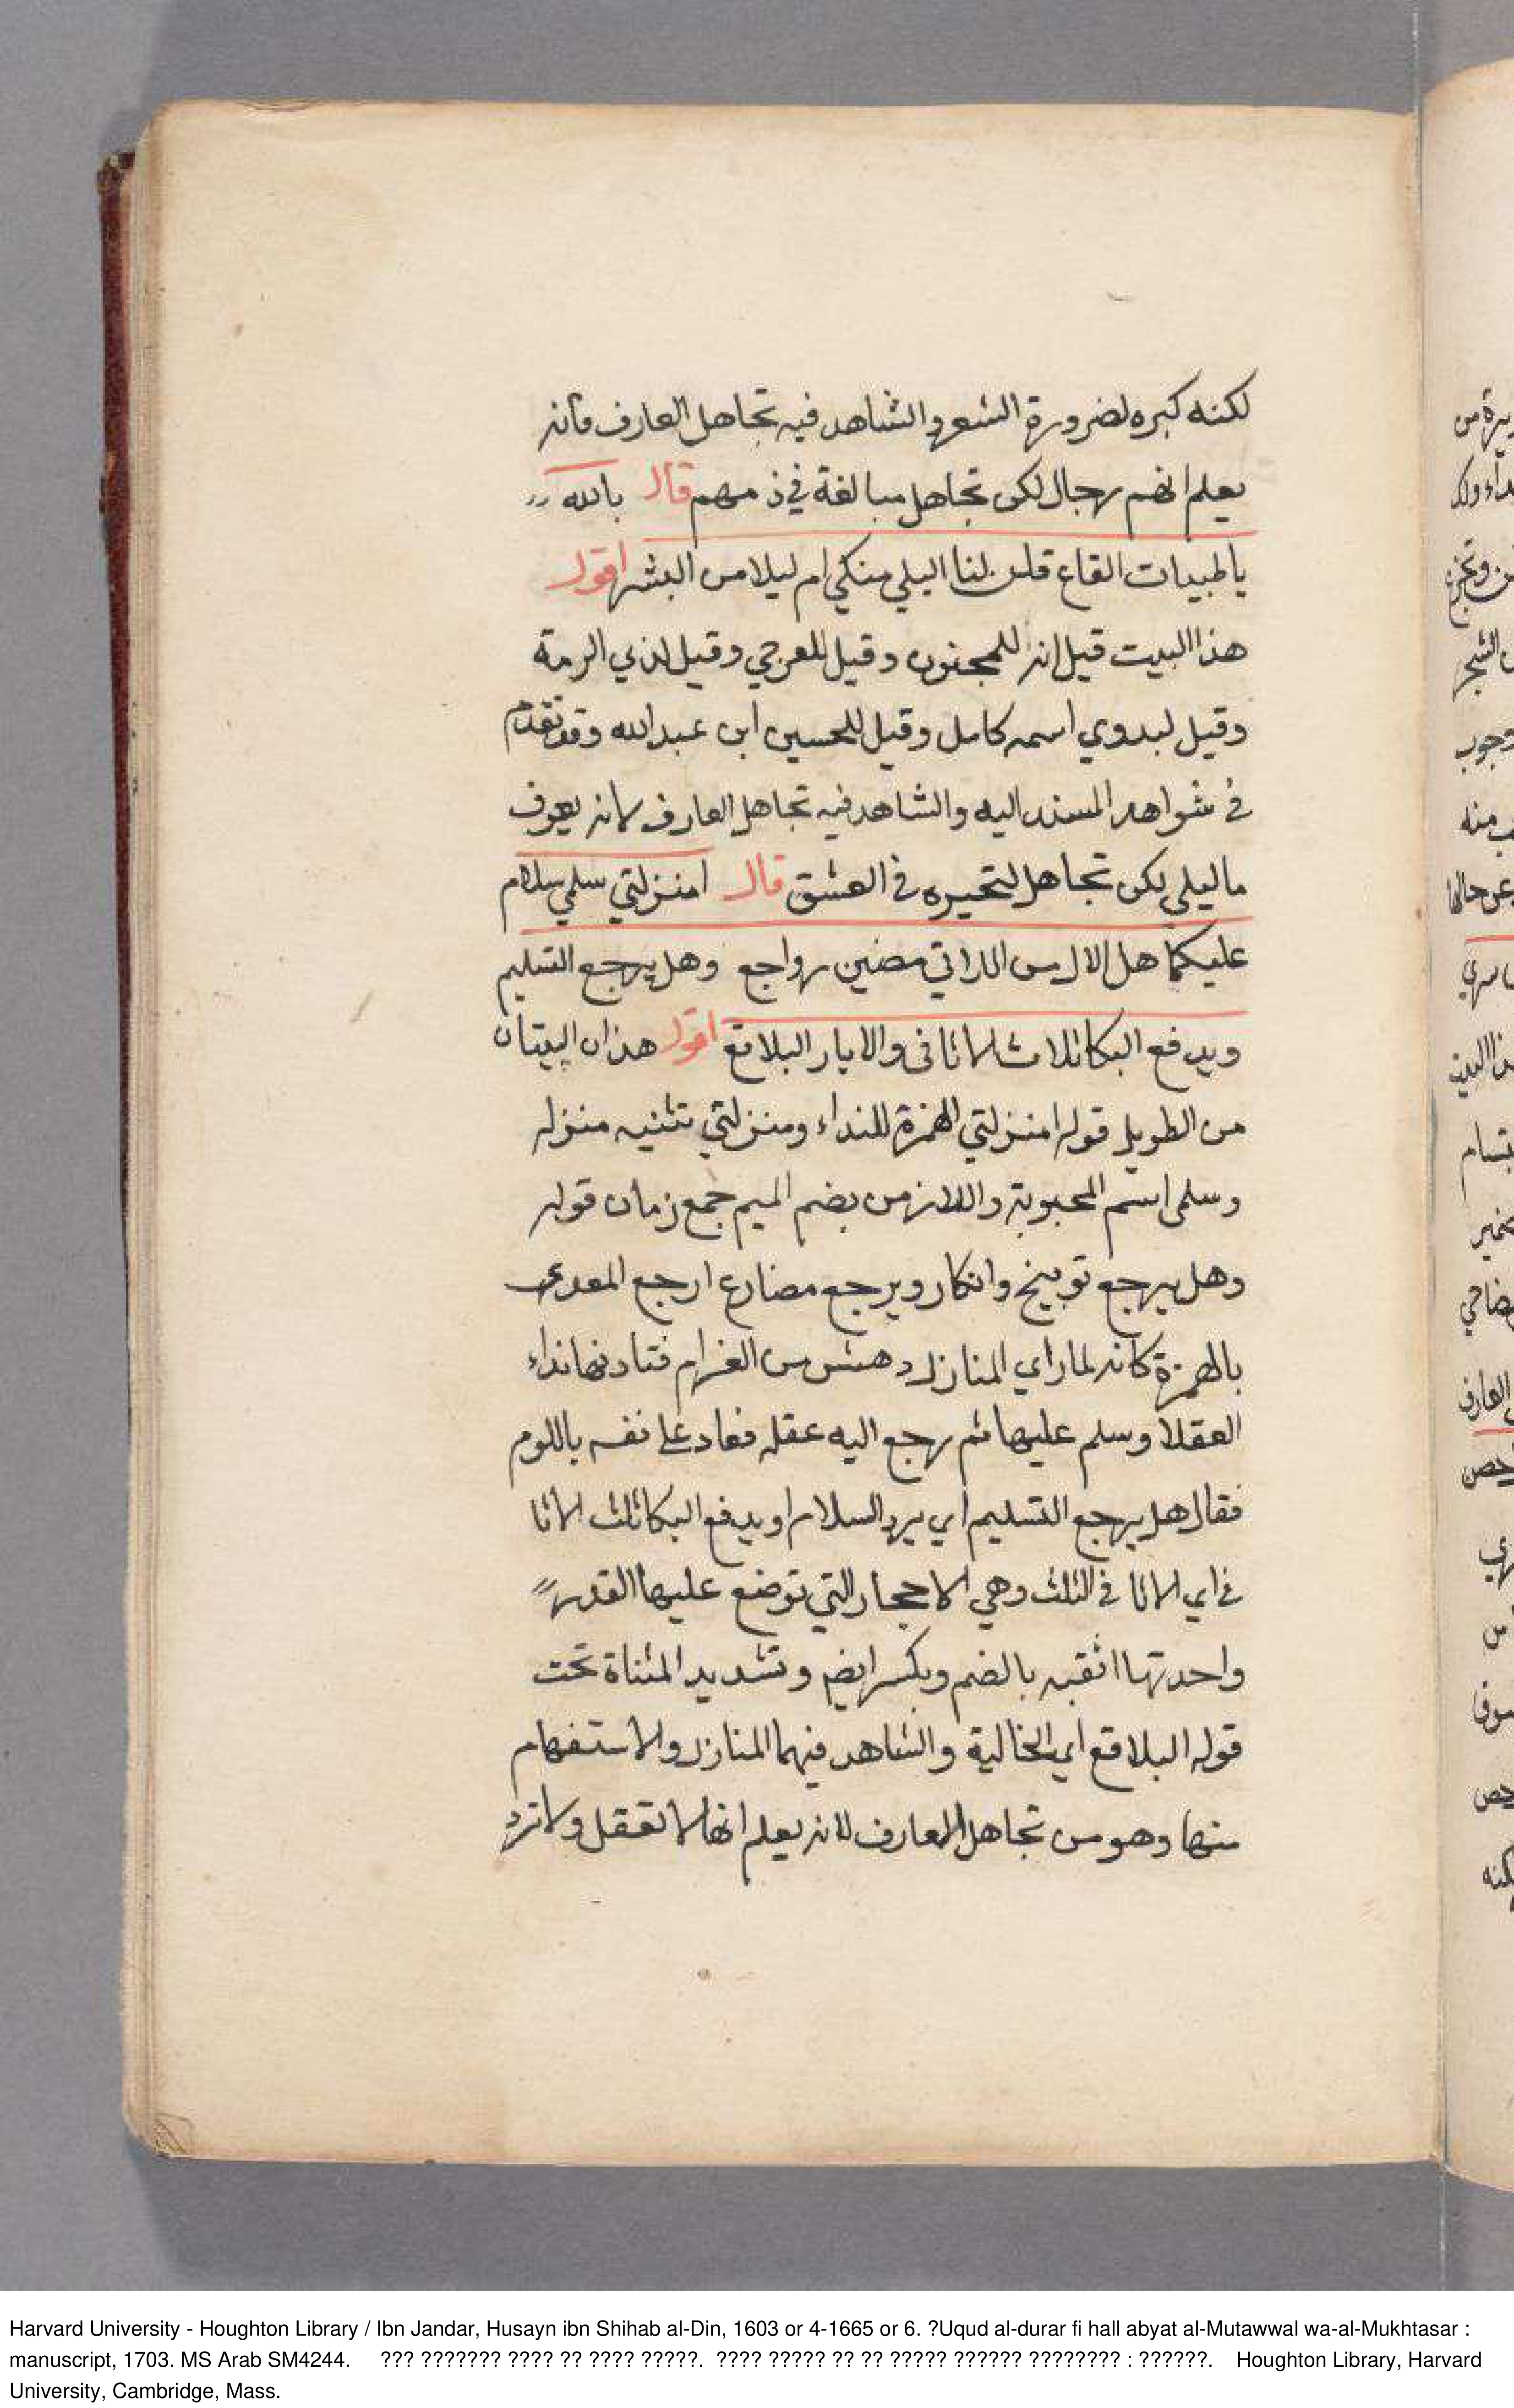 لكنه كبره لضرورة الشعر والشاهد فيه تجاهل العارف فانه
يعلم انهم رجال لكن تجاهل مبالغة في ذمهم قال بالله
يا ظبيات القاع قلن لنا اليلي منكي ام ليلا من البشر اقول
هذا البيت قيل انه للمجنون وقيل للعرجي وقيل لذي الرمة
وقيل لبدوي اسمه كامل وقيل للحسين ابن عبدالله وقد تقدم
في شواهد المسند اليه والشاهد فيه تجاهل العارف لانه يعرف
ما ليلى لكن تجاهل لتحيره في العشق قال امنزلتي سلمي سلام
عليكما هل الازمن اللاتي مضين رواجع وهل يرجع التسليم
ويدفع البكا ثلاث الاثافى والديار البلاقع اقول هذان البيتان
من الطويل قوله امنزلتي الهمزة للنداء ومنزلتي تثنيه منزله
وسلمى اسم المحبوبة واللازمن بضم الميم جمع زمان قوله
وهل يرجع توبيخ وانكار ويرجع مضارع ارجع المعدى
بالهمزة كانه لما راي المنازل دهش من الغرام فنادنها نداء
العقلا وسلم عليها ثم رجع اليه عقله فعاد على نفسه باللوم
فقال هل يرجع التسليم اي يرد السلام او يدفع البكا ثلث الاثا
في اي الاثا في الثلث وهي الاحجار التي توضع عليها القدر
واحدتها اثفيه بالضم ويكسر ايض وتشديد المثناة تحت
قوله البلاقع اي الخالية والشاهد فيهما المنازل والاستفهام
منها وهو من تجاهل العارف لانه يعلم انها لا تعقل ولا ترد
Harvard University - Houghton Library / Ibn Jandar, Husayn ibn Shihab al-Din, 1603 or 4-1665 or 6. ?Uqud al-durar fi hall abyat al-Mutawwal wa-al-Mukhtasar :
manuscript, 1703. MS Arab SM4244. ??? ??????? ???? ?? ???? ?????. ???? ????? ?? ?? ????? ?????? ???????? : ??????. Houghton Library, Harvard
University, Cambridge, Mass.